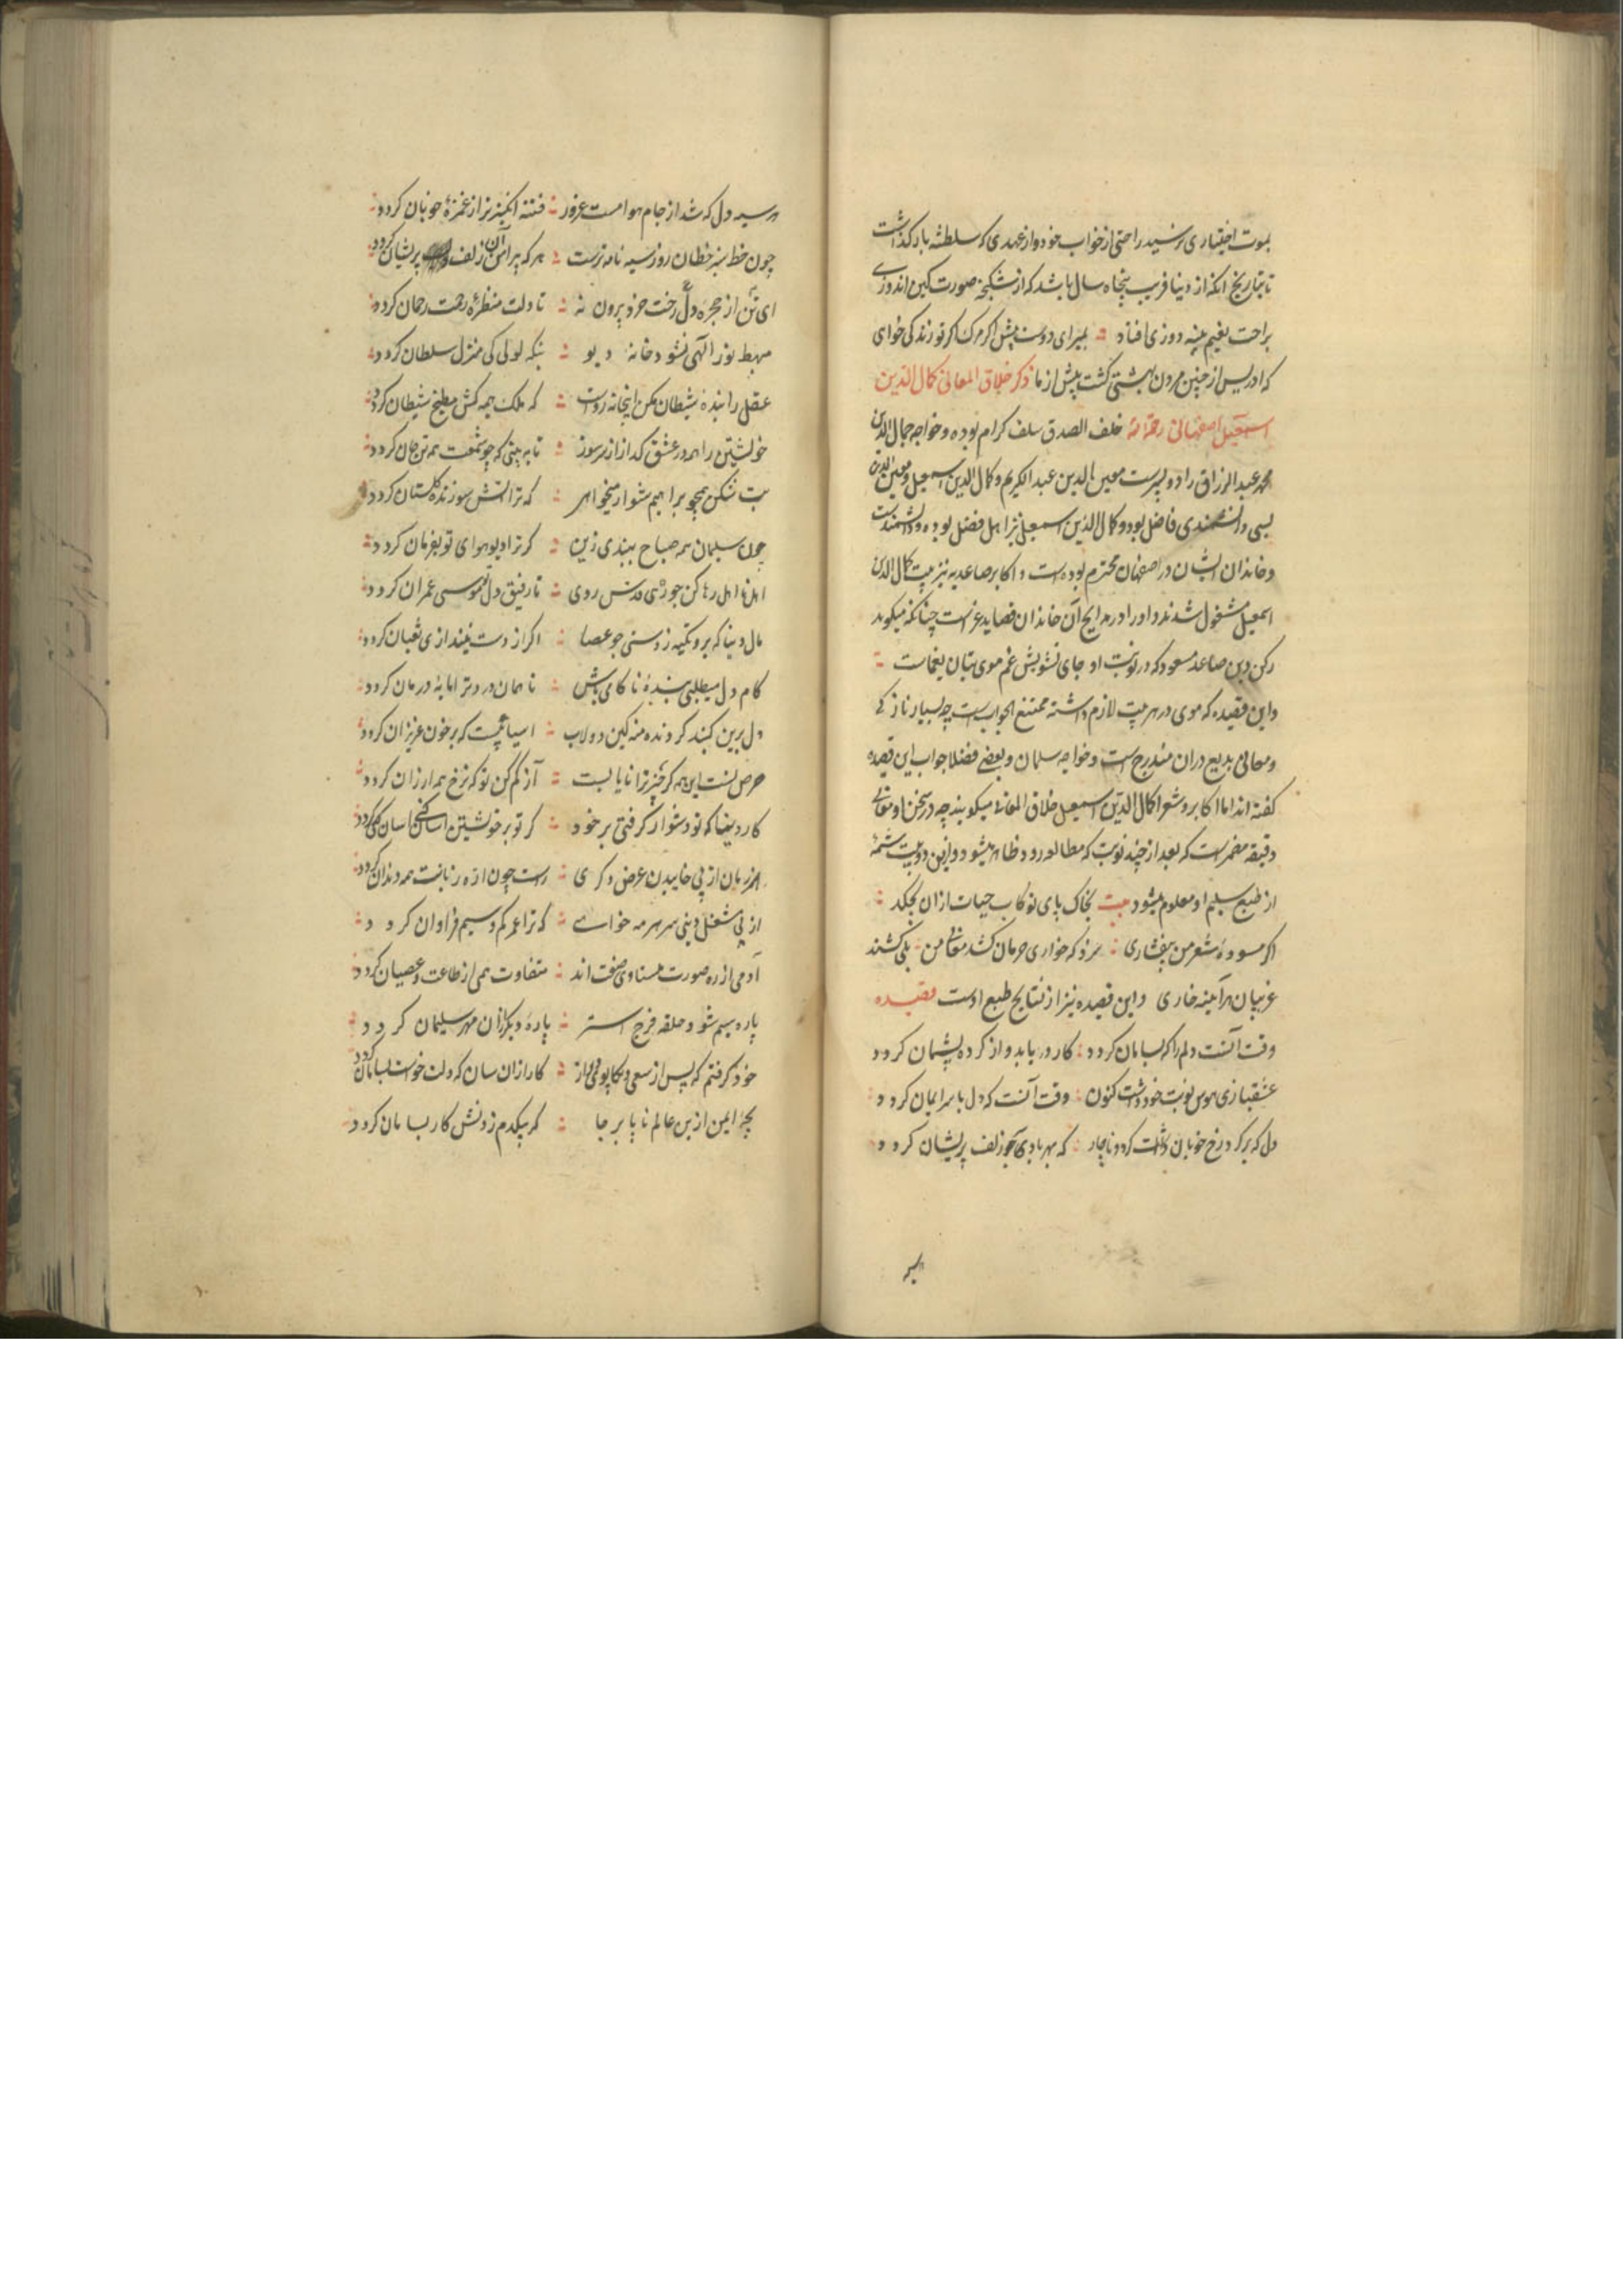 بموت اختیاری نرسید راحتی از خواب خود و از عهدی که سلطنت باد گذاشت
تا بتاریخ آنکه از دنیا قریب پنجاه سال باشد که از شکنجه صورت کین اندوزی
براحت نعیم پینه دوزی افتاد بمیر ای دوست پیش از مرگ اگر تو زندگی خواهی
که ادریس از چنین مردن بهشتی گشت پیش از ما ذکر خلاق المعانی کمال الدین
اسمعیل اصفهانی رحمة الله خلف الصدق سلف کرام بوده و خواجه جمال الدین
محمد عبد الرزاق را دو پسرست معین الدین عبد الکریم و کمال الدین اسمعیل و معین الدین
بسی دانشمندی فاضل بود و کمال الدین اسمعیل نیز اهل فضل بوده و دانشمندست
و خاندان ایشان در اصفهان محترم بوده است و اکابر صاعدیه نیز بتربیت کمال الدین
اسمعیل مشغول شدند و او را در مدایح آن خاندان قصاید غراست چنانکه میگوید
رکن دین صاعد مسعود که در نوبت او جای تشویش غم موی بتان یغماست
و این قصیده که موی در هر بیت لازم داشته ممتنع الجواب است چه بسیار نازکی
و معانی بدیع دران مندرج است و خواجه سلمان و بعضی فضلا جواب این قصیده
گفته اند اما اکابر و شعرا کمال الدین اسمعیل خلاق المعانی میگویند چه در سخن او معانی
دقیقه مضمر است که بعد از چند نوبت که مطالعه رود ظاهر میشود و ازین دو بیت شمه
از طبع سلیم او معلوم میشود بیت بخاک پای تو کاب حیات ازان بچکد
اگر مسوده شعر من بیفشاری سزد که خواری حرمان کشد معانی من بلی کشند
غریبان هر آینه خاری و این قصیده نیز از نتایج طبع اوست قصیده
وقت آنست دلم را که بسامان گردد کار دریابد و از کرده پشیمان گردد
عشقبازی هوس نوبت خود داشت کنون وقت آنست که دل با سر ایمان گردد
دل که بر گرد رخ خوبان گشت گردد ناچار که بهر بادی چو زلف پریشان گردد
هر سیه دل که شد از جام هوا مست غرور فتنه انگیزتر از غمزه خوبان گردد
چون خط سبز خطان روز سیه نامه ترست هر که پیرامن آن زلف پریشان گردد
ای تن از حجره دل رخت خرد بیرون نه تا دلت منظره رحمت رحمان گردد
مهبط نور الهی نشود خانه دیو بنگه لولی کی منزل سلطان گردد
عقل را بنده شیطان مکن اینجا نه رواست که ملک همه کش مطبخ شیطان گردد
خویشتن را همه در عشق گداز از سر سوز تا به بینی که چو شمعت همه تن جان گردد
بت شکن همچو براهیم شو ار میخواهی که ترا آتش سوزنده گلستان گردد
چون سلیمان همه صباح ببندی زین گر ترا دیو هوای تو بفرمان گردد
اهل نا اهل رها کن چو ز پی قدس روی تا رفیق دل تو موسی عمران گردد
مال دنیا که برو تکیه زدستی چو عصا اگر از دست بیندازی ثعبان گردد
کام دل میطلبی بنده ناکامی باش تا همان درد ترا مایه درمان گردد
دل برین گنبد گردنده منه کین دولاب آسیائیست که بر خون عزیزان گردد
حرص تست این همه گر چیز ترا نایابست آز کم کن تو که نرخ همه ارزان گردد
کار دنیا که تو دشوار گرفتی بر خود گر تو بر خویشتن آسان کنی آسان گردد
هرزه مان از پی خاییدن عرض دگری راست چون اره زبانت همه دندان گردد
از پی شغل دنی سر بسر مه خواسی که ترا عمر کم و سیم فراوان گردد
آدمی از ره صورت متساوی صفت اند متفاوت همی از طاعت و عصیان گردد
پاره سیم شود حلقه فرج استر پاره دیگر ازان مهر سلیمان گردد
خود گرفتم که پس از سعی و تکاپوی دراز کار ازان سان که دلت خواست بسامان گردد
بچه ایمن ازین عالم نا پا بر جا گر بیکدم زدنش کار بسامان گردد
هر سیه